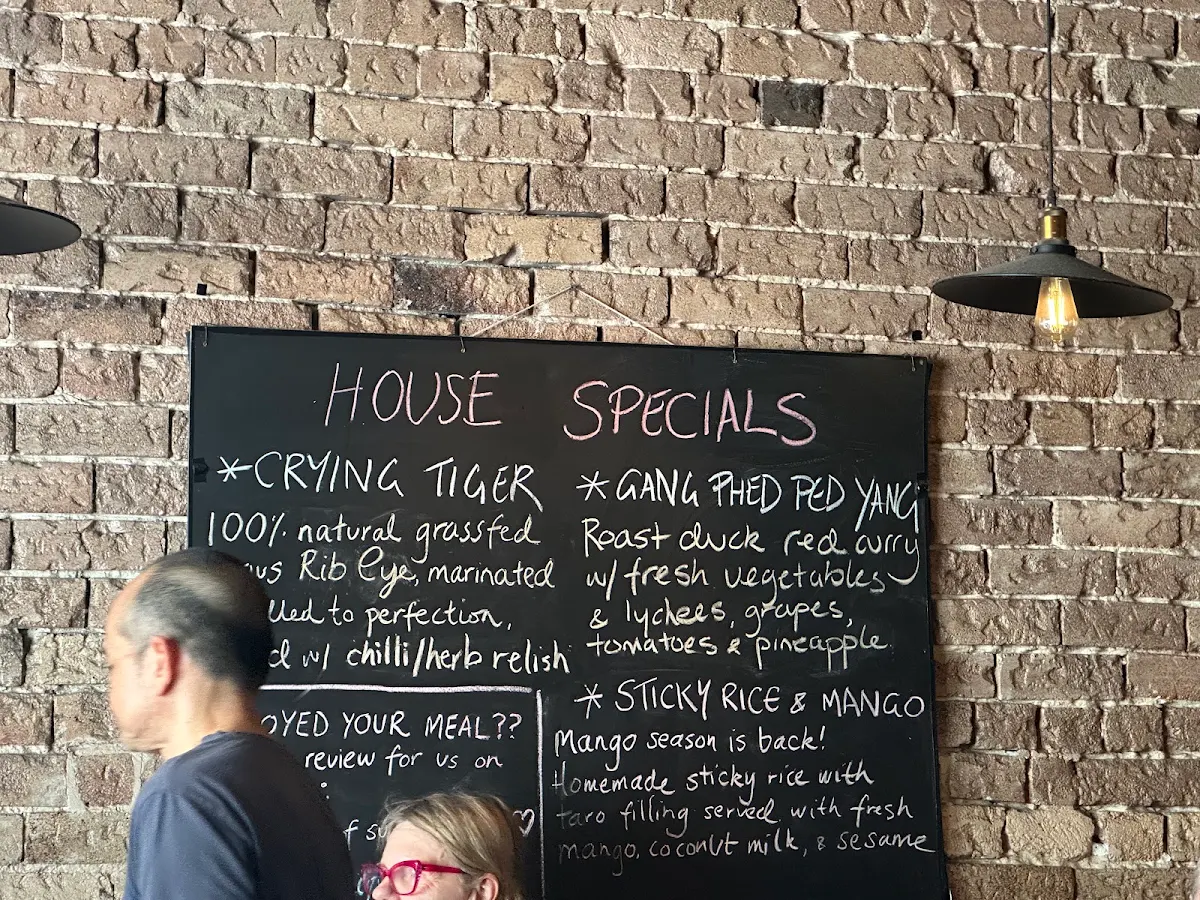 HOUSE SPECIALS
*CRYING TIGER
100% natural grassfed
Rib Eye, marinated
to perfection,
w/ chilli/herb relish
YOUR MEAL??
review for us on
*GANG PHED PED YANG
Roast duck red curry
w/ fresh vegetables
& lychees, grapes,
tomatoes & pineapple.
*STICKY RICE & MANGO
Mango season is back!
Homemade sticky rice with
taro filling served with fresh
mango, coconut milk, & sesame